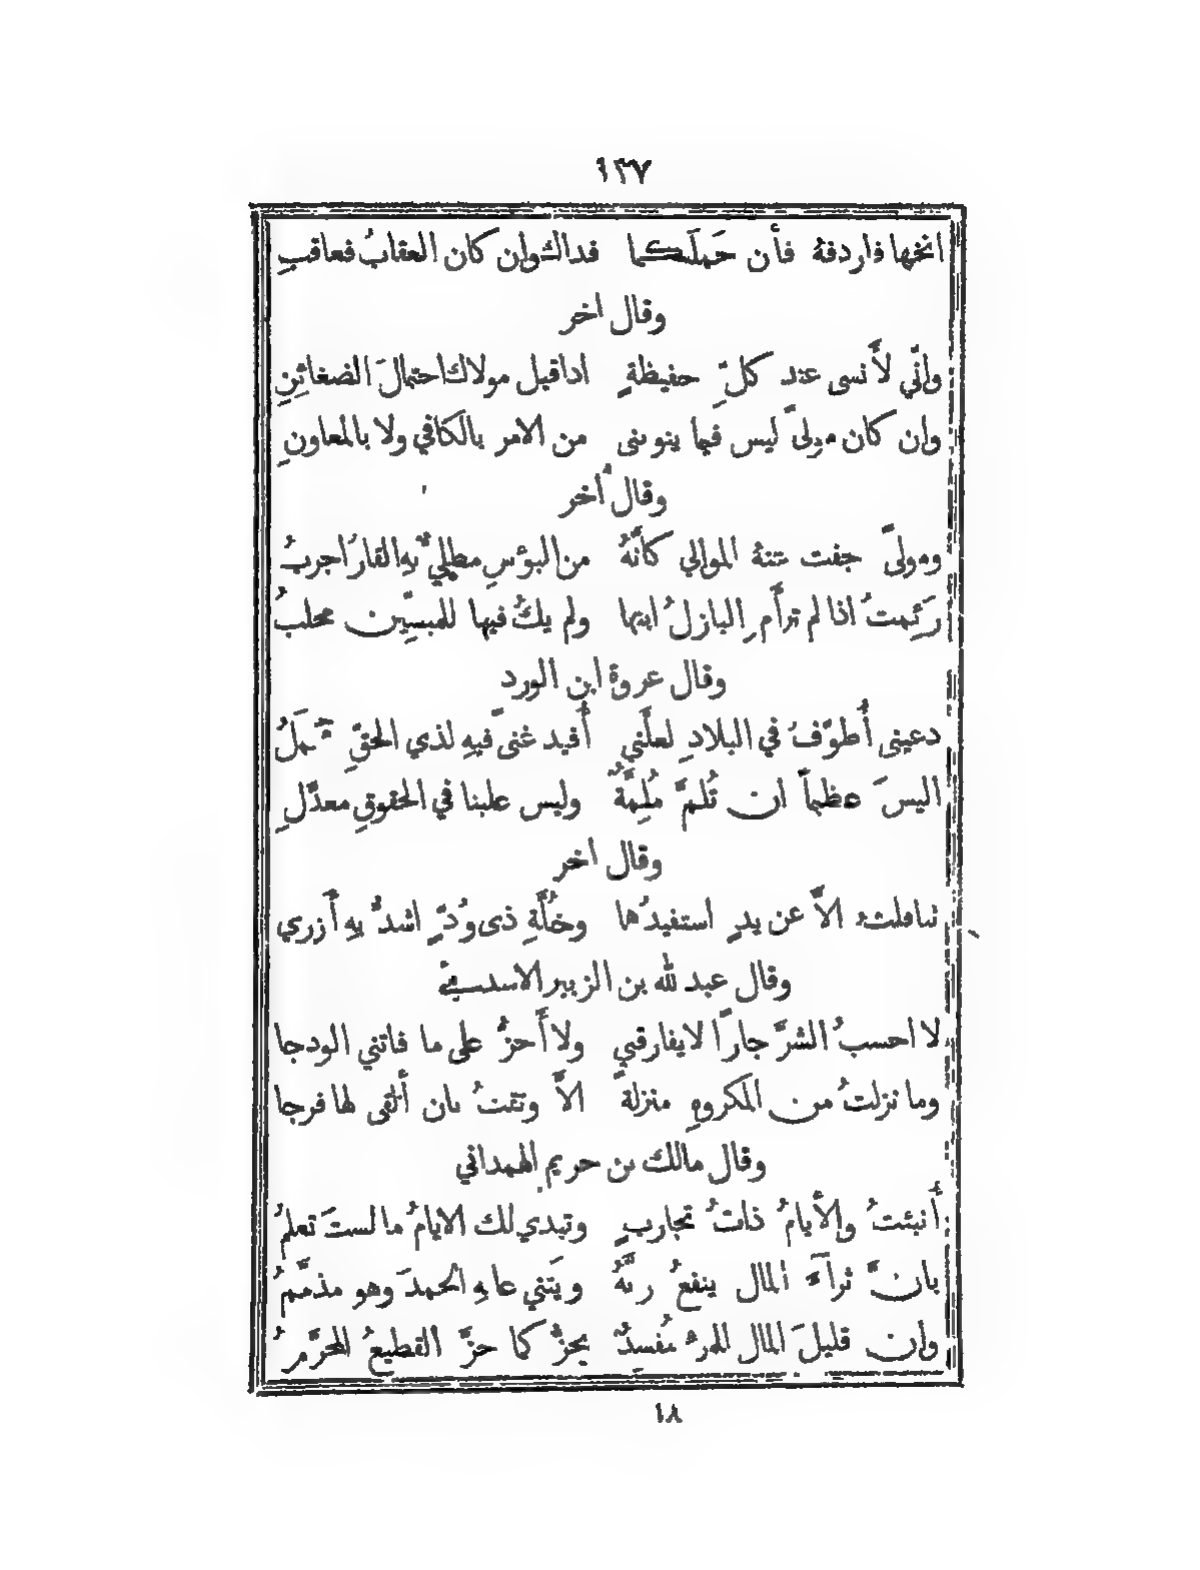 ١٣٧
انخها فاردفهُ فأن حَملَتكما فداك وان كان العقابُ فعاقبِ
وقال اخر
وانّي لأَنسى عند كلِّ حفيظةٍ اداقيل مولاك احتمالَ الضغائِنِ
وان كان مولىً ليس فيما ينوبنى من الامر بالكافي ولا بالمعاونِ
وقال أخر
ومولىً جفت عنهُ الموالي كأنَّهُ من البؤسِ مطليٌّ بهِ القارُ اجربُ
رَئِمتُ اذا لم ترأَمِ البازلُ ابنها ولم يكُ فيها للمبسِّين محلبُ
وقال عروة ابن الورد
دعينى أُطوّفُ في البلادِ لعلَّني أُفيد غنىً فيهِ لذي الحقِّ محملُ
اليسَ عظيماً ان تُلمَّ مُلِمَّةٌ وليس علينا في الحقوقِ معدَّلِ
وقال اخر
تثاقلتُ الاَّ عن يدٍ استفيدُها وخُلَّةِ ذى وُدٍّ اشدُّ بهِ أَزري
وقال عبد لله بن الزبير الاسديّ
لا احسبُ الشرَّ جارًا لايفارقني ولا أَحزُّ على ما فاتني الودجا
وما نزلتُ من المكروهِ منزلةً الاَّ وثقتُ بان أَلقى لها فرجا
وقال مالك بن حريم الهمداني
أُنبئتُ والأَيامُ ذاتُ تجاربٍ وتبدي لك الايامُ ما لستَ تعلمُ
بانَّ ثرآءَ المال ينفعُ ربَّهُ ويَثني عليهِ الحمدَ وهو مذمَّمُ
وان قليلَ المال للمرءِ مُفسِدٌ يحزُّ كما حزَّ القطيعُ المحرَّمُ
١٨